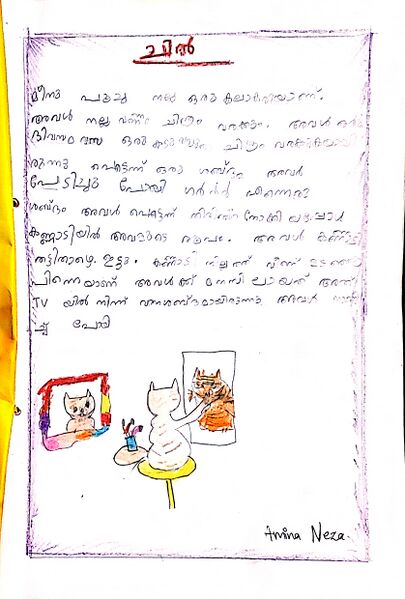 ചിൽ
മീനു പൂച്ച നല്ല ഒരു കലാകാരിയാണ്.
അവൾ നല്ല വണ്ണം ചിത്രം വരക്കും. അവൾ ഒരു
ദിവസം ഒരു കടുവയുടെ ചിത്രം വരക്കുകയായി
രുന്നു പെട്ടെന്ന് ഒരു ശബ്ദം അവർ
പേടിച്ചു പോയി ഗർർർ എന്നൊരു
ശബ്ദം അവൾ പെട്ടന്ന് തിരിഞ്ഞുനോക്കി
കണ്ണാടിയിൽ അവളുടെ രൂപം. അവൾ കണ്ണാടി
തട്ടിതാഴെ ഇട്ടു. കണ്ണാടി നിലത്ത് വീണ് ഉടഞ്ഞു
പിന്നെയാണ് അവൾക്ക് മനസിലായത് അത്
TV യിൽ നിന്ന് വന്നശബ്ദമായിരുന്നു അവൾ
ച്ചു പോയി
Amina Neza.